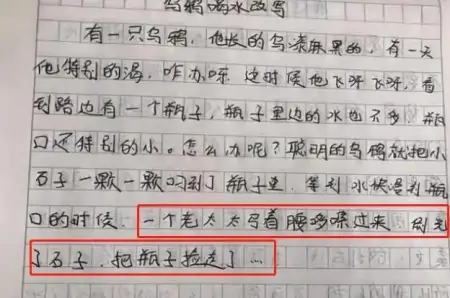 乌鸦喝水改写
有一只乌鸦，他长的乌漆麻黑的，有一天
他特别的渴，咋办呢 这时候他飞呀飞呀，看
到路边有一个瓶子，瓶子里边的水也不多，瓶
口还特别的小。怎么办呢？聪明的乌鸦就把小
石子一颗一颗叼到了瓶子里，等到水快漫到瓶
口的时候，一个老太太弓着腰哆嗦过来 倒光
了石子，把瓶子捡走了…